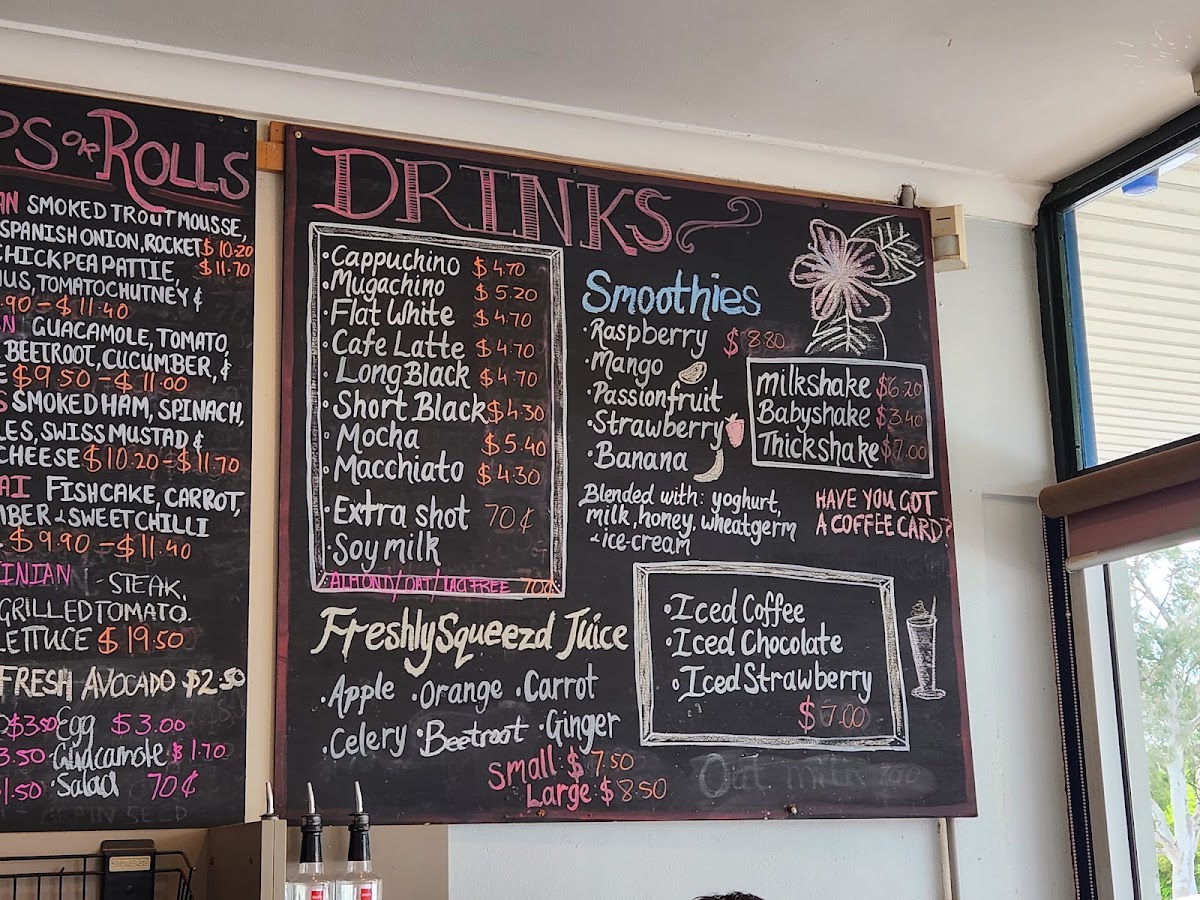 OR ROLLS
SMOKED TROUT MOUSSE,
SPANISH ONION, ROCKET $10.20
CHICKPEA PATTIE, $11.70
TOMATO CHUTNEY &
.90 - $11.40
GUACAMOLE, TOMATO,
BEETROOT, CUCUMBER, &
$9.50 - $11.00
SMOKED HAM, SPINACH,
SWISS MUSTAD &
CHEESE $10.20 - $11.70
FISHCAKE, CARROT,
& SWEET CHILLI
$9.90 - $11.40
- STEAK,
GRILLED TOMATO.
LETTUCE $19.50
FRESH AVOCADO $2.50
$3.50 Egg $3.00
3.50 · Guacamole $1.70
1.50 · Salad 70¢
DRINKS
· Cappuchino $4.70
· Mugachino $5.20
· Flat White $4.70
· Cafe Latte $4.70
· Long Black $4.70
· Short Black $4.30
· Mocha $5.40
· Macchiato $4.30
· Extra shot 70¢
· Soy milk
· ALMOND/OAT/LAC FREE 70¢
Freshly Squeezd Juice
· Apple · Orange · Carrot
· Celery · Beetroot · Ginger
Small $7.50
Large $8.50
Smoothies
· Raspberry $8.80
· Mango
· Passionfruit
· Strawberry
· Banana
Blended with: yoghurt,
milk, honey, wheatgerm
& ice-cream
milkshake $6.20
Babyshake $3.40
Thickshake $7.00
HAVE YOU GOT
A COFFEE CARD?
· Iced Coffee
· Iced Chocolate
· Iced Strawberry
$7.00
Oat milk